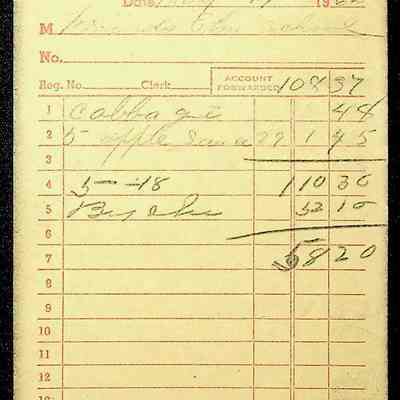 Date 19
M
No.
Reg. No. Clerk ACCOUNT FORWARDED 108 37
1 cabbage 48
2 5 apple Sauce 29 1 45
3
4 5-18 110 30
5 By chk 52 10
6
7 58 20
8
9
10
11
12